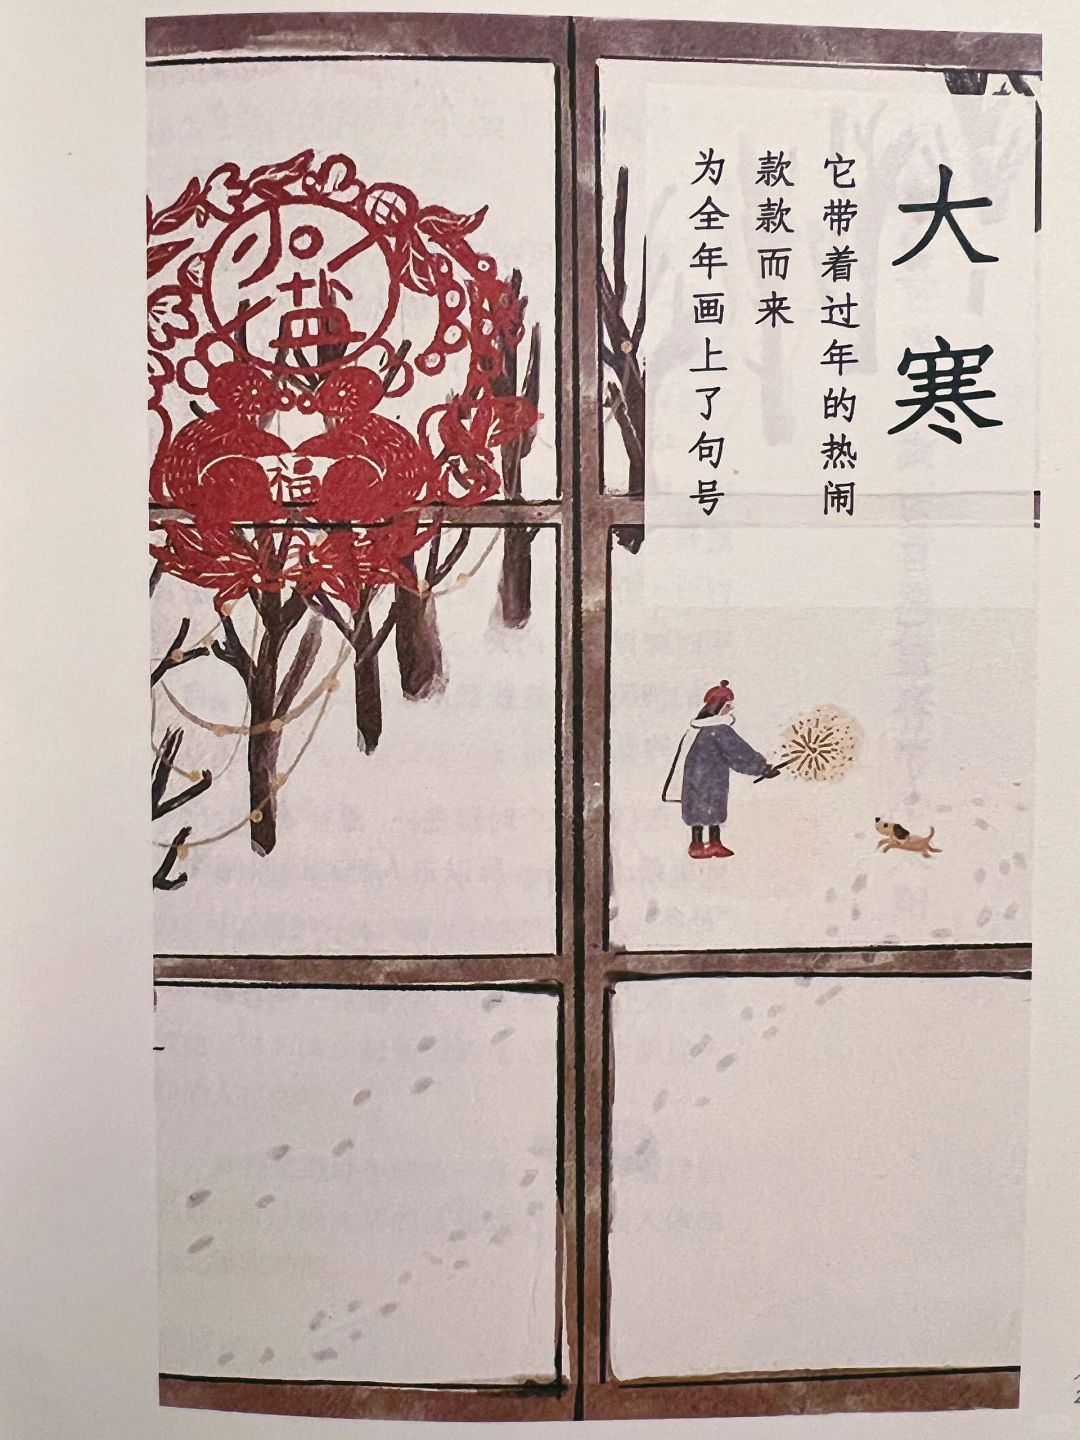 大寒
它带着过年的热闹
款款而来
为全年画上了句号
福